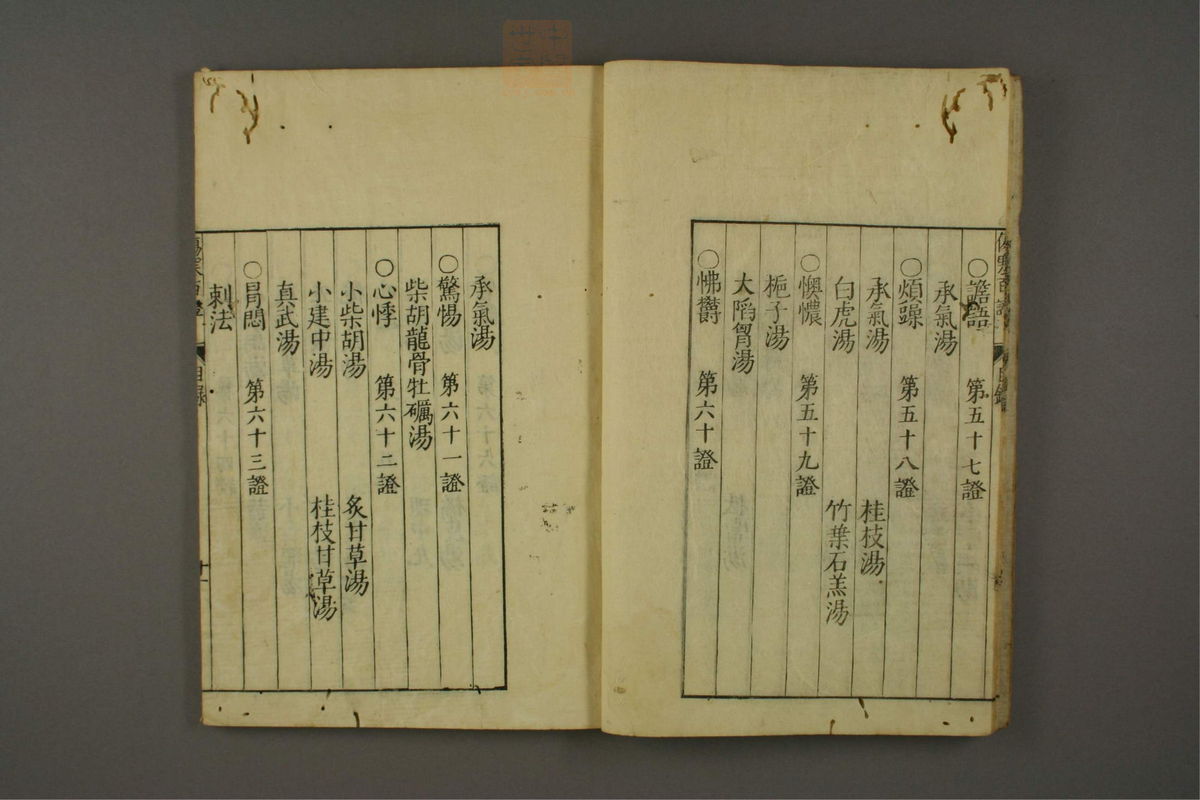 ○譫語 第五十七證
承氣湯
○煩躁 第五十八證
承氣湯 桂枝湯
白虎湯 竹葉石羔湯
○懊憹 第五十九證
梔子湯
大陷胷湯
○怫鬱 第六十證
承氣湯
○驚惕 第六十一證
柴胡龍骨牡礪湯
○心悸 第六十二證
小柴胡湯 炙甘草湯
小建中湯 桂枝甘草湯
真武湯
第六十三證
刺法
目錄